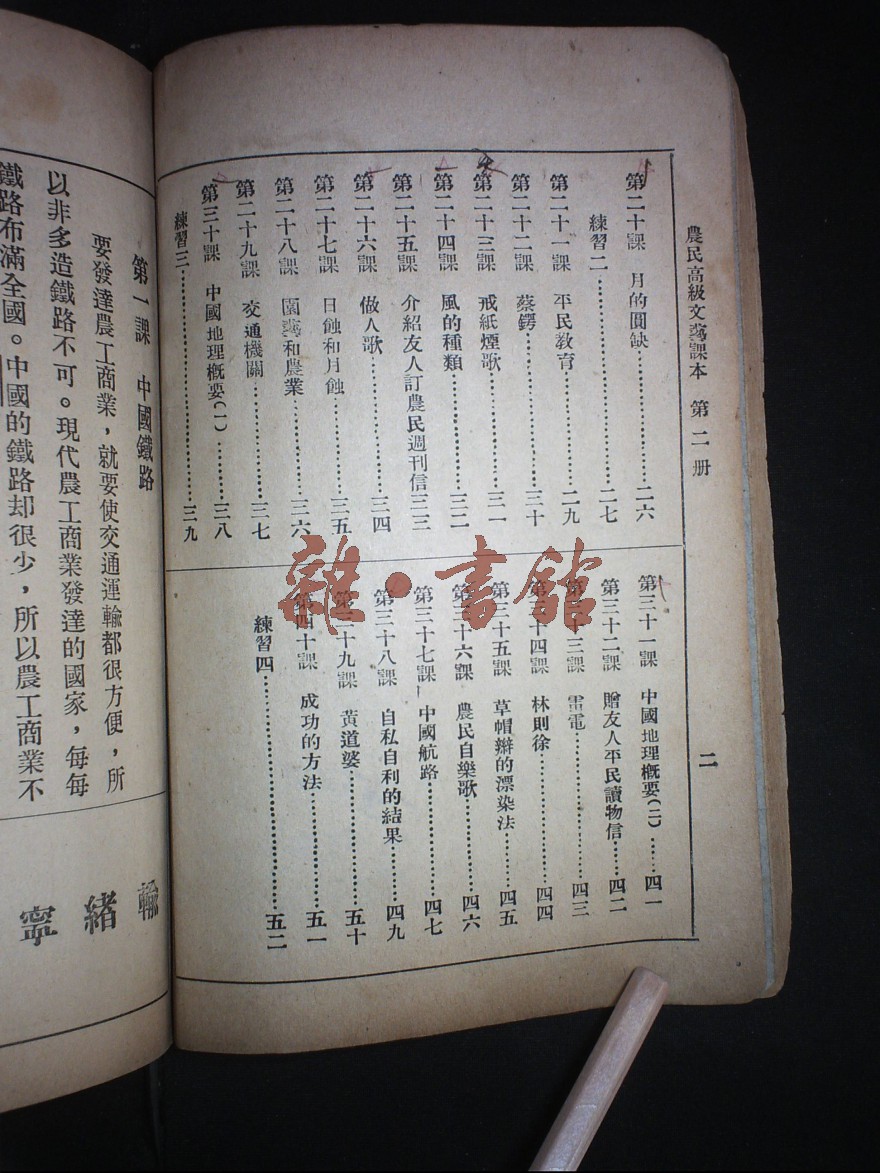 農民高級文藝課本　第二册
二
第二十課　月的圓缺………二六
練習二………二七
第二十一課　平民教育………二九
第二十二課　蔡鍔………三十
第二十三課　戒紙煙歌………三一
第二十四課　風的種類………三二
第二十五課　介紹友人訂農民週刊信三三
第二十六課　做人歌………三四
第二十七課　日蝕和月蝕………三五
第二十八課　園藝和農業………三六
第二十九課　交通機關………三七
第三十課　中國地理概要(一)………三八
練習三………三九
第三十一課　中國地理概要(二)………四一
第三十二課　贈友人平民讀物信………四二
第三十三課　雷電………四三
第三十四課　林則徐………四四
第三十五課　草帽辮的漂染法………四五
第三十六課　農民自樂歌………四六
第三十七課　中國航路………四七
第三十八課　自私自利的結果………四九
第三十九課　黃道婆………五十
第四十課　成功的方法………五一
練習四………五二
第一課　中國鐵路
要發達農工商業，就要使交通運輸都很方便，所
以非多造鐵路不可。現代農工商業發達的國家，每每
鐵路布滿全國。中國的鐵路却很少，所以農工商業不
輸
緒
寧
雜·書館